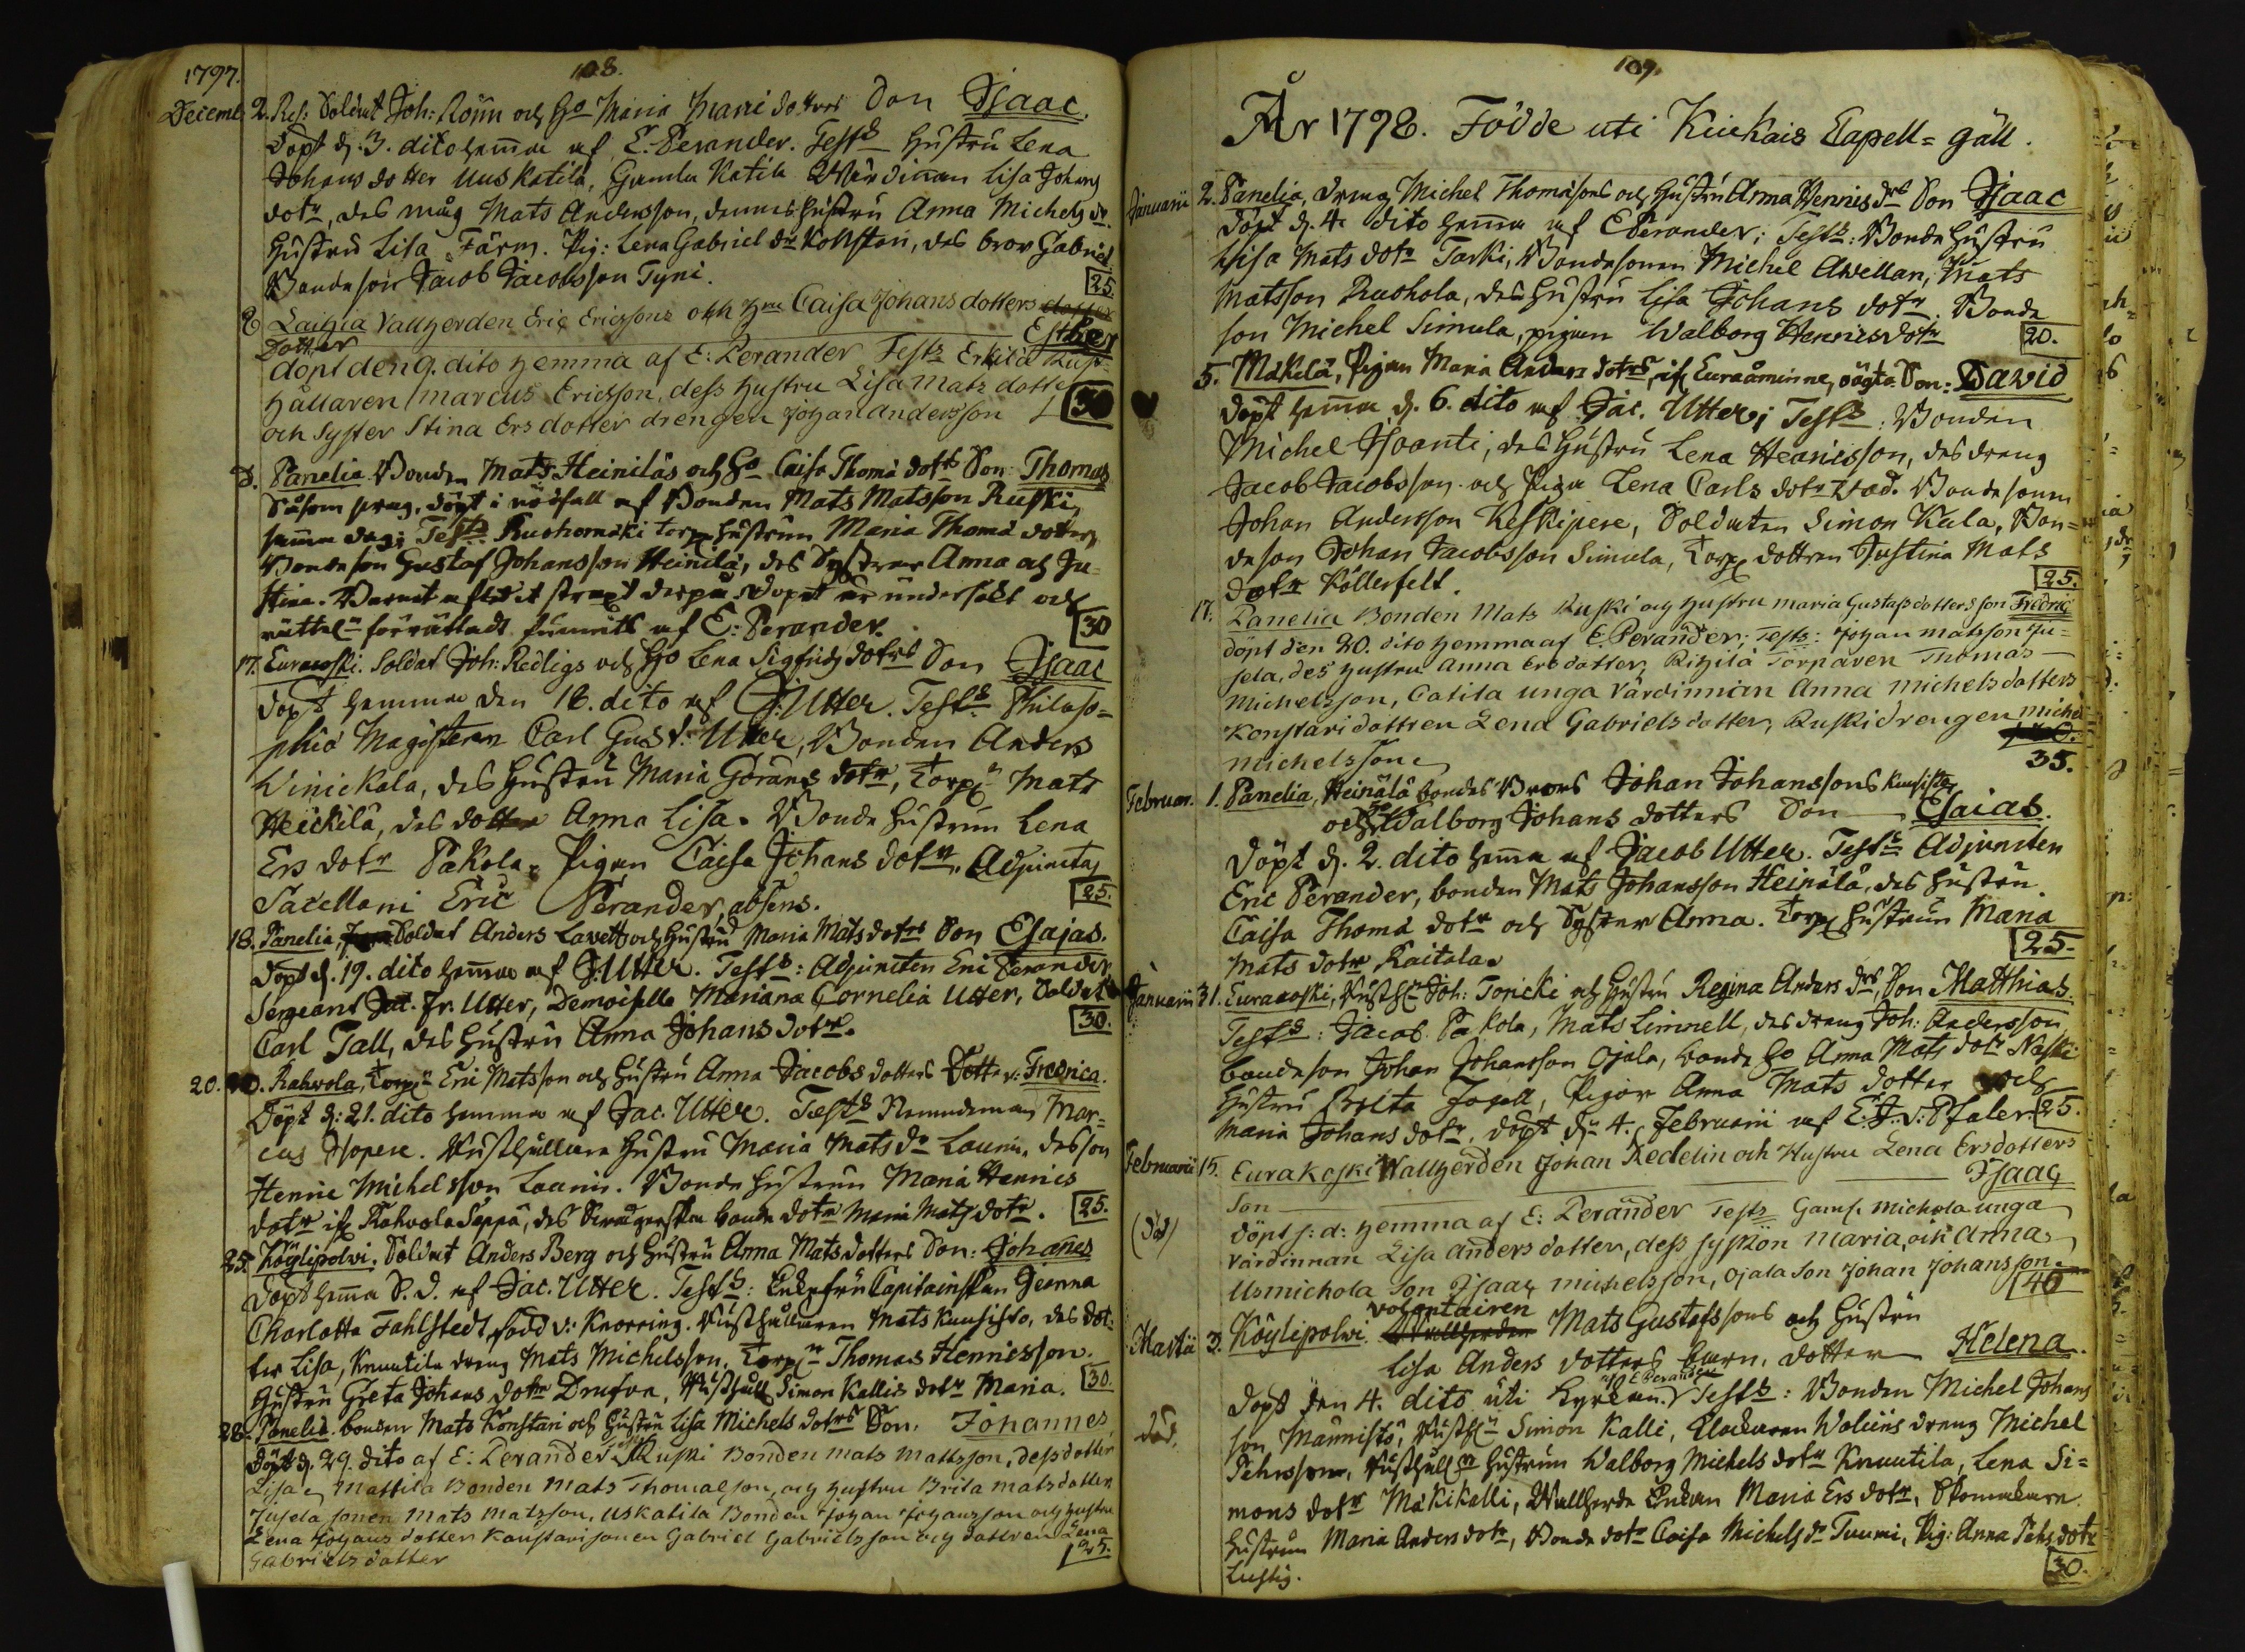 1797.
108.
Decemb. 2. Res: Soldat Joh: Rönn och Ho Maria Mariædotters Son Isaac.
Döpt d. 3. dito hemma af E. Perander. Test: Hustru Lena
Johans dotter Uuskatila, Gamla Katila Wärdinnan Lisa Johans
dotr, des måg Mats Andersson, dennes hustru Anna Michels dr.
Hustru Lisa Färm. Pig: Lena Gabriel dr Konstari, des bror Gabriel
Bondeson Jacob Jacobsson Tyni. 25
8 Laihia Vallherden Eric Ericssons och Hru Caisa Johans dotters dotter
Dotter Esther
döpt den 9. dito hemma af E: Perander Tests Erkilä Rust-
hållaren Marcus Ericsson, dess hustru Lisa Mats dotter
och Syster Stina Ersdotter drengen Johan Andersson 30
d. Panelia Bonden Mats Heiniläs och Ho Caisa Thomædotrs Son: Thomas
Såsom swag, döpt i nödfall af Bonden Mats Matsson Ruski,
samma dag; Tests Ruohomäki torp: hustrun Maria Thomædotter,
Bondeson Gustaf Johansson Heinilä, des Systrar Anna och Ju-
stina. Barnet afled strax derpå, dopet är undersökt och
rättel. förrättadt funnits af E: Perander. 30
17. Euraåski. Soldat Joh: Redligs och Ho Lena Sigfrids dotrs Son Isaac
Döpt hemma den 18. dito af J. Utter. Tests: Philoso-
phiæ Magisteren Carl Gust: Utter, Bonden Anders
Winickala, des Hustru Maria Görans dotr, Torp: Mats
Heickilä, des dotter Anna Lisa. Bonde hustrun Lena
Ers dotr Pakola. Pigan Caisa Johans dotr. Adjuncta
Sacellani Eric Perander, absens. 25.
18. Panelia, Soldat Anders Lavett och Hustru Maria Mats dotrs Son Esajas.
Döpt d. 19. dito hemma af J. Utter. Tests: Adjuncten Eric Perander
Sergeant Jac. Fr. Utter, Demoiselle Mariana Cornelia Utter, Soldat
Carl Tall, des Hustru Anna Johans dotr. 30.
20. Rahvola, Torp: Eric Matsson och Hustru Anna Jacobs dotters Dotter: Fredrica.
Döpt d: 21. dito hemma af Jac. Utter. Tests Nemndeman Mar-
cus Isopere. Rusthållare hustru Maria Mats dr Launi, des son
Henric Michelsson Launi. Bonde hustrun Maria Hennis
dotr if: Rahvola Seppä, des Swägerska bonde dotr Maria Mats dotr. 25.
25. Köylipolvi. Soldat Anders Berg och Hustru Anna Mats dotters Son: Johannes
Döpt hemma S. D. af Jac. Utter. Tests: Enkefru Capitainskan Gianna
Charlotta Fahlstedt, född v: Knorring. Rusthållaren Mats Kaufisto, des dot-
ter Lisa, Knuutila dreng Mats Michelsson. Torp: Thomas Hennicsson.
Hustru Greta Johans dotr Drufva, Rusthåll: Simon Kallis dotr Maria. 30.
28. Panelia. bonden Mats Konstari och Hustru Lisa Michels dotrs Son. Johannes,
döpt d. 29. dito af E: Perander Tests Ruski Bonden Mats Mattsson, dess dotter
Lisa, Mattila Bonden Mats Thomasson, och hustru Brita matsdotter
Jusela sonen Mats Matsson, Uskatila Bonden Johan Johansson och hustru
Lena Johans dotter Konstari sonen Gabriel Gabrielsson och dottren Lena
Gabriels dotter 25.
109.
År 1798. Födde uti Kiukais Capell-gäll.
Januarii 2. Panelia, dreng Michel Thomassons och Hustru Anna Hennis drs Son Isaac
döpt d. 4. dito hemma af E Perander; Tests: Bonde hustru
Lisa Mats dotr Tarki, Bondesonen Michel Awellan, Mats
Matsson Ruohola, des hustru Lisa Johans dotr. Bonde
son Michel Simula, pigan Walborg Hennicsdotr 20.
5. Mäkelä, Pigan Maria Anders dotrs, if. Euraåminne, oägta Son: David
döpt hemma d. 6. dito af Jac. Utter; Tests: Bonden
Michel Isoanti, des hustru Lena Henricsson, des dreng
Jacob Jacobsson och Piga Lena Carls dotr Stad. Bondesonen
Johan Andersson Keskipere, Soldaten Simon Kula, Bon-
deson Johan Jacobsson Simula, Torp: dottren Justina Mats
dotr Köllerfelt. 25.
17. Panelia Bonden Mats Ruski och hustru maria Gustafsdotters son Fredric
döpt den 20. dito hemma af E. Perander; Tests: Johan matsson Ju-
sela, des hustru Anna Ersdotter, Rihilä Torparen Thomas
Michelsson, Catila unga Värdinnan Anna michelsdotters
Konstari dottren Lena Gabrielsdotter, Ruski drengen michel
michelsson 35.
Februar. 1. Panelia, Heinälä bondes Brors Johan Johanssons
och Ho Walborg Johans dotters Son Esaias.
Döpt d. 2. dito hemma af Jacob Utter. Tests Adjuncten
Eric Perander, bonden Mats Johansson Heinälä, des hustru
Caisa Thomæ dotr och Syster Anna. Torp: hustrun Maria
Mats dotr Raitala. 25.
Januarii 31. Euraåoski, Rusth: Joh: Toricki och Hustru Regina Anders drs, Son Matthias.
Tests: Jacob Pakola, Mats Limnell, des dreng Joh: Andersson,
bondeson Johan Johansson Ojala, bonde Ho Anna Mats dotr Naski
hustru Brita Fogell, Pigor Anna Mats dotter och
Maria Johans dotr. döpt d. 4. Februarii af E. J. v: Pfaler. 25.
Februarii 15. Eurakoski Wallherden Johan Redelin och Hustru Lena Ersdotters
Son Isaac
(död) döpt s: d: hemma af E: Perander Tests Gaml. Michola unga
värdinnan Lisa andersdotter, dess syskon Maria, och Anna,
Usmichola Son Isaac michelsson, ojala Son Johan Johansson. 40
volontairen
Martii 3. Köylipolwi. Wallherden Mats Gustafssons och Hustru
Lisa Anders dotters barn, dotter Helena.
af E Perander
Döpt den 4. dito uti Kyrkan. Tests: Bonden Michel Johans
död. son Männistö, Rusth: Simon Kalli, Klockaren Walliis dreng Michel
Pehrsson, Rusthåll: hustrun Walborg Michels dotr Knuutila, Lena Si-
mons dotr Mäkikalli, Wallherde Enkan Maria Ers dotr, Skomakare
hustrun Maria Anders dotr, Bonde dotr Caisa Michels dr Tuumi, Pig: Anna Pehrs dotr
Lustig. 30.